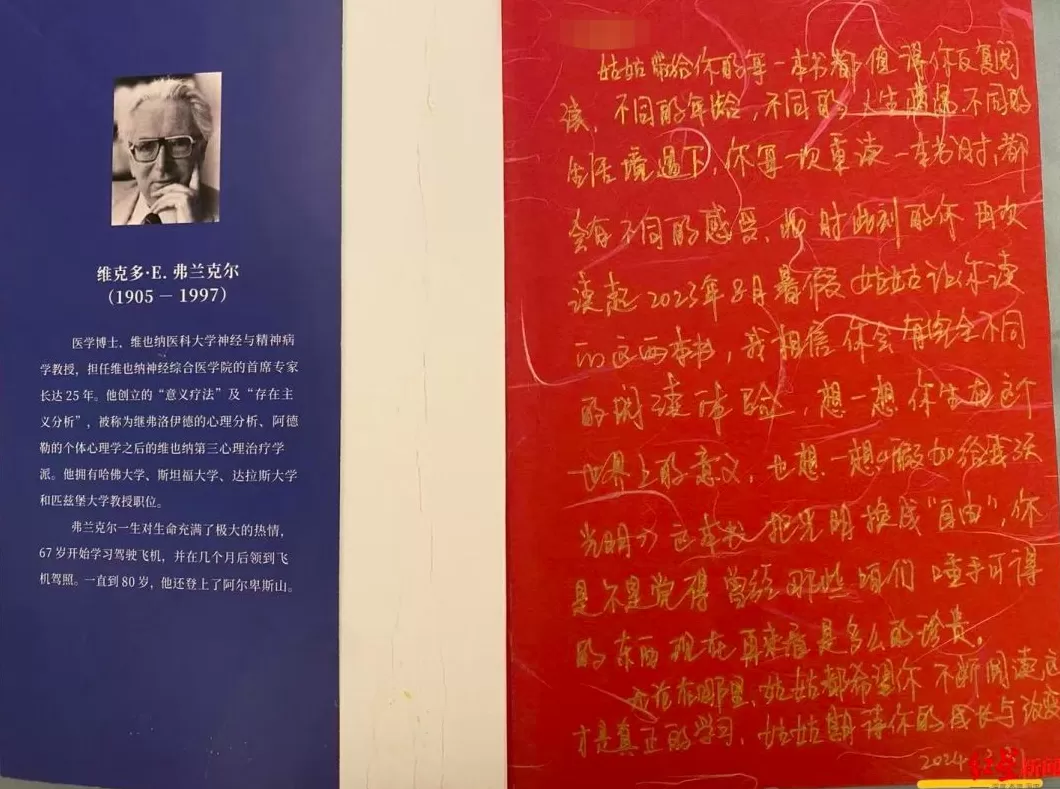 维克多·E. 弗兰克尔
（1905 － 1997）
医学博士，维也纳医科大学神经与精神病
学教授，担任维也纳神经综合医学院的首席专家
长达 25 年。他创立的“意义疗法”及“存在主
义分析”，被称为继弗洛伊德的心理分析、阿德
勒的个体心理学之后的维也纳第三心理治疗学
派。他拥有哈佛大学、斯坦福大学、达拉斯大学
和匹兹堡大学教授职位。
弗兰克尔一生对生命充满了极大的热情，
67 岁开始学习驾驶飞机，并在几个月后领到飞
机驾照。一直到 80 岁，他还登上了阿尔卑斯山。
姑姑带给你的每一本书都值得你反复阅
读，不同的年龄，不同的人生 不同的
生活境遇下，你每一次重读一本书时，都
会有不同的感受，此时此刻的你再次
读起2023年8月暑假姑姑让你读
的这两本书，我相信你会有完全不同
的阅读体验，想一想你生在这个
世界上的意义，也想一想《假如给我三天
光明》这本书把光明换成“自由”，你
是不是觉得曾经那些咱们唾手可得
的东西现在再来看是多么的珍贵。
在哪里，姑姑都希望你不断阅读这
才是真正的学习，姑姑期待你的成长与
2024
红星新闻